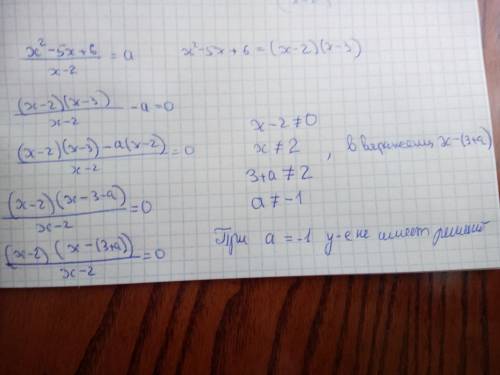 x²-5x+6 / x-2 = a
x²-5x+6=(x-2)(x-3)
(x-2)(x-3) / x-2 -a=0
(x-2)(x-3)-a(x-2) / x-2 =0
(x-2)(x-3-a) / x-2 =0
(x-2)(x-(3+a)) / x-2 =0
x-2≠0
x≠2 , в выражении x-(3+a)
3+a≠2
a≠-1
При a=-1 у-е не имеет решений